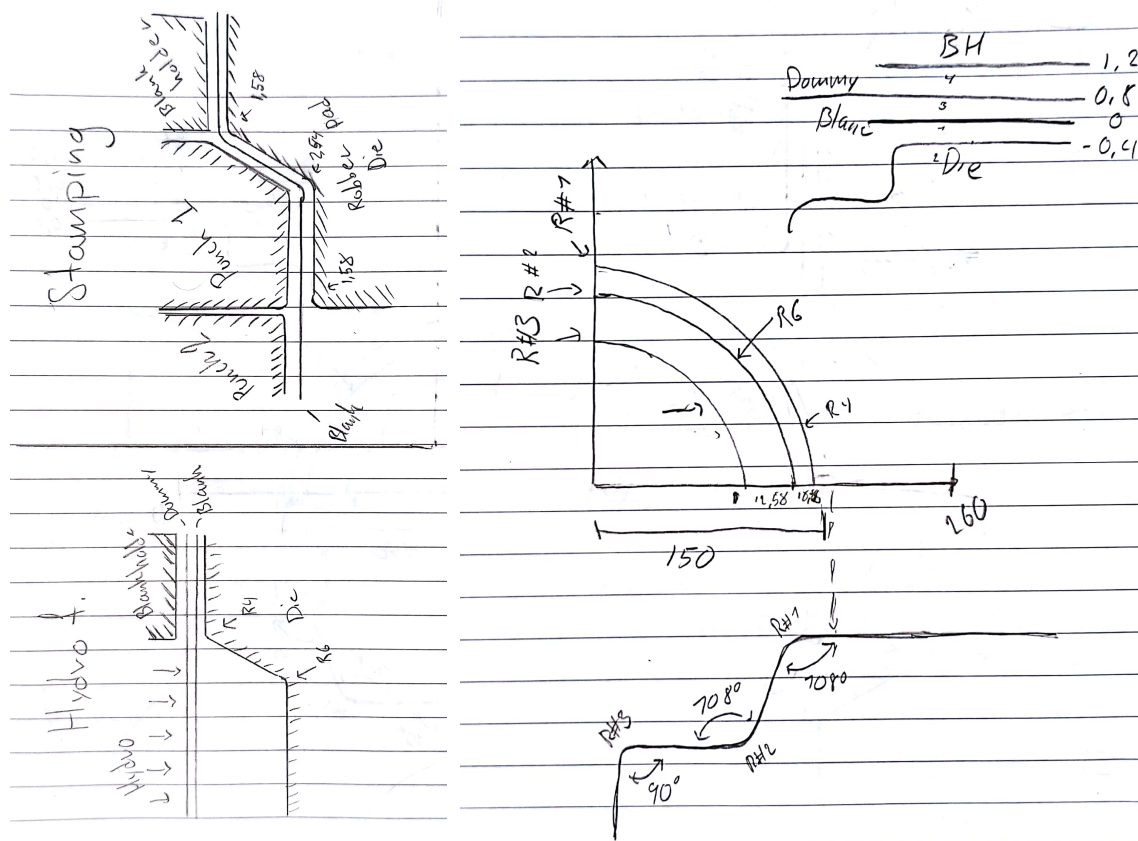 Stamping
Blank
holder
1,58
2,54
Pad
Rubber
Die
Punch 1
1,58
Punch 2
Blank
Hydro f.
Blankholder
Dummy
Blank
R4
Die
R6
Hydro
BH
1,2
4
Dommy
0,8
3
Blanc
0
1
-0,4
2
Die
R#1
R#2
R#3
R6
R4
12,58
260
150
R#1
108°
108°
R#3
R#2
90°